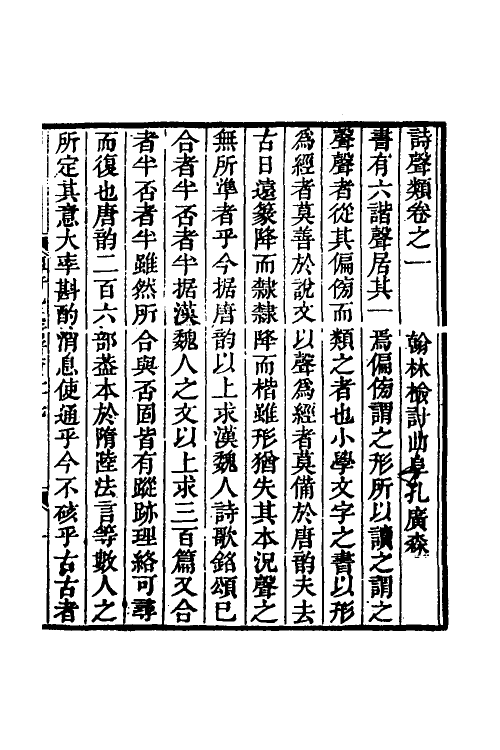 詩聲類卷之一
翰林檢討曲阜孔廣森
書有六諧聲居其一焉偏傍謂之形所以讀之謂之
聲聲者從其偏傍而類之者也小學文字之書以形
爲經者莫善於說文以聲爲經者莫備於唐韵夫去
古日遠篆降而隸隸降而楷雖形猶失其本況聲之
無所準者乎今据唐韵以上求漢魏人詩歌銘頌已
合者半否者半据漢魏人之文以上求三百篇又合
者半否者半雖然所合與否固皆有蹤跡理絡可尋
而復也唐韵二百六部葢本於隋陸法言等數人之
所定其意大率斟酌消息使通乎今不硋乎古古者